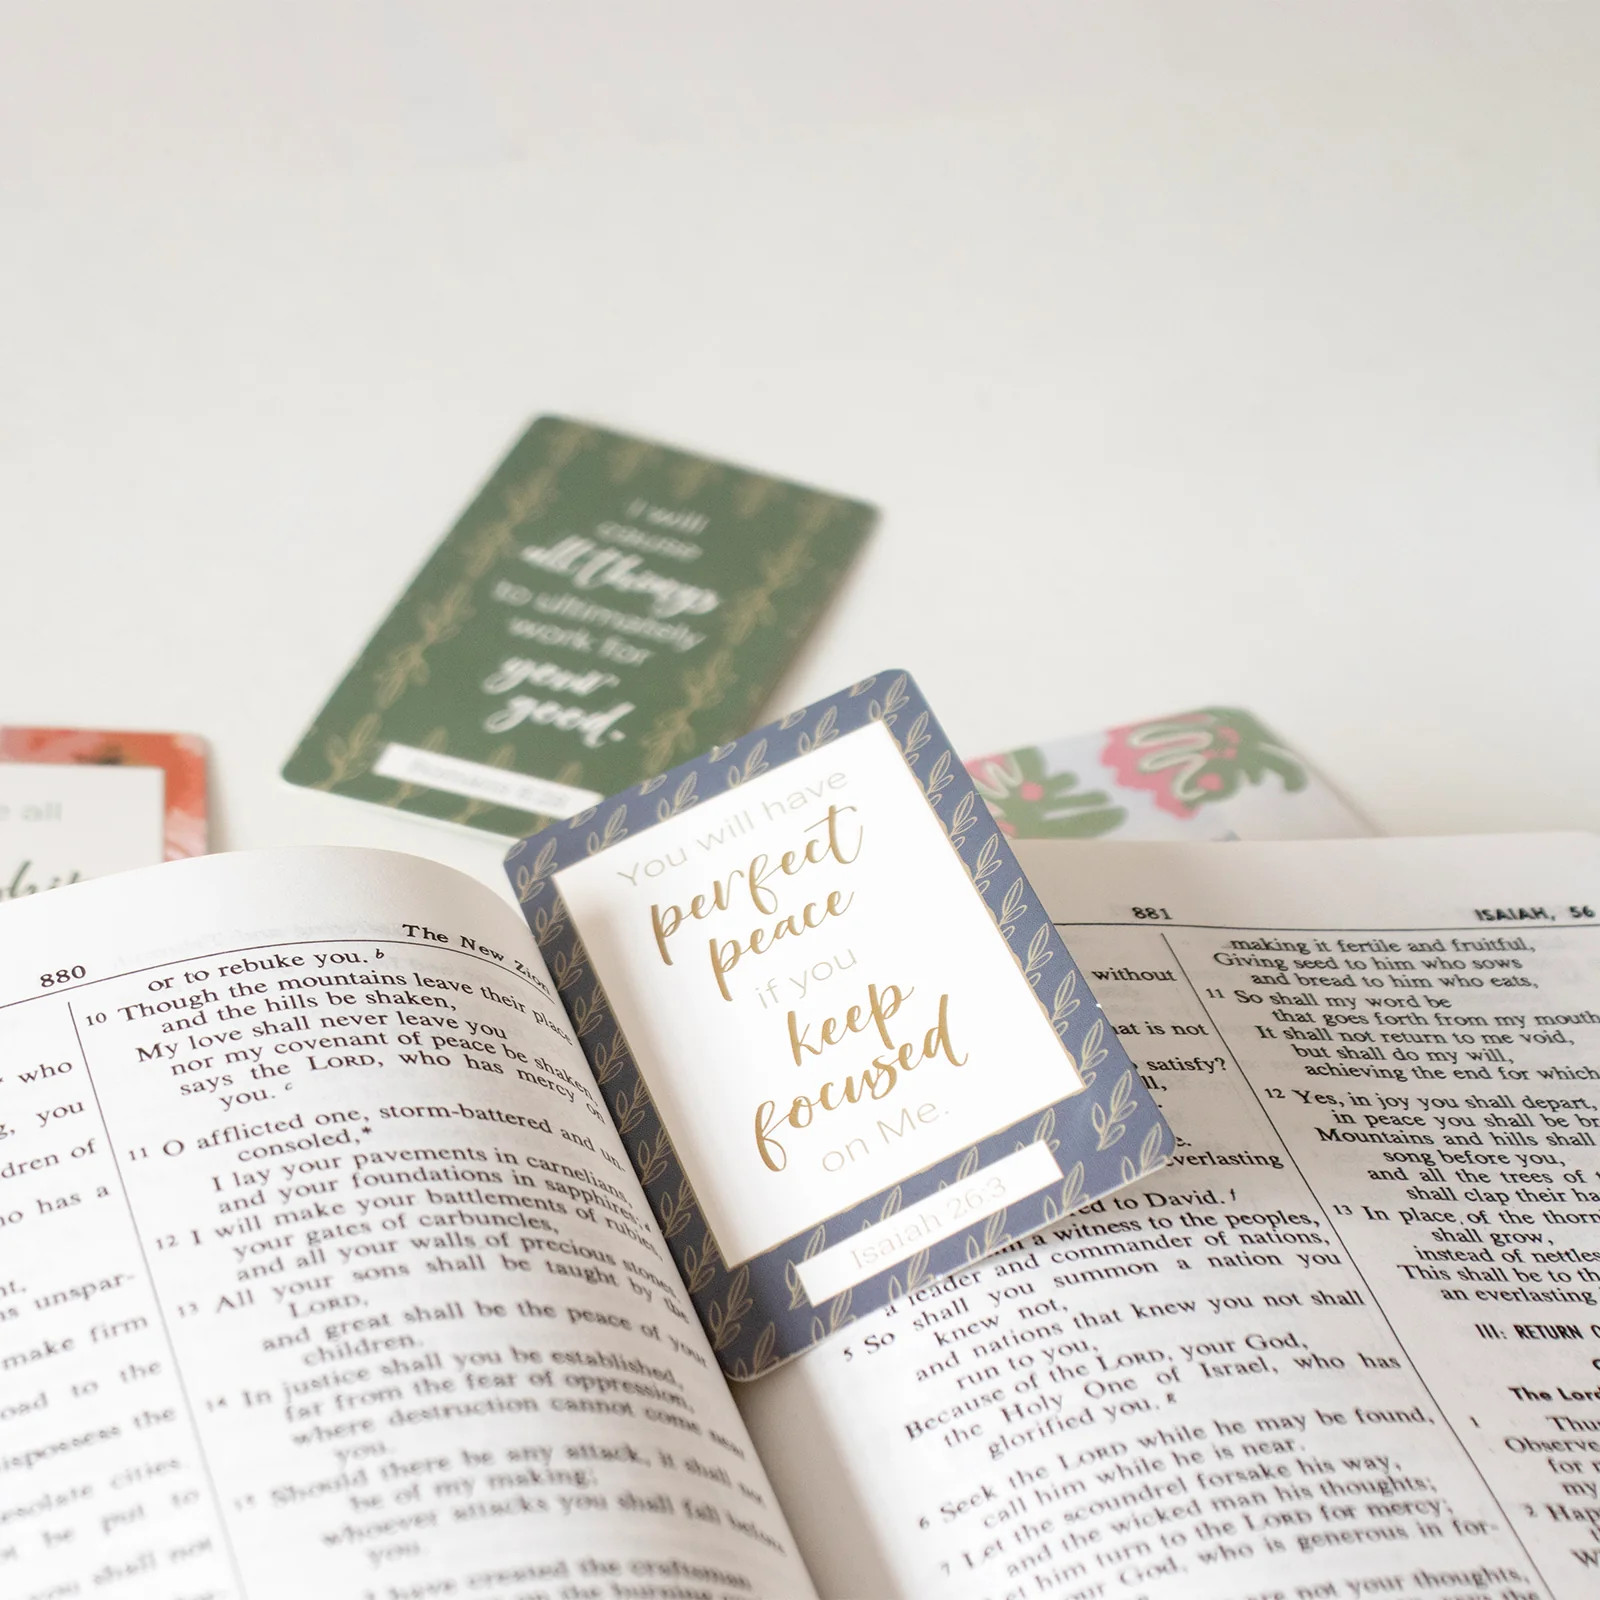 I will
cause
all things
to ultimately
work for
your
good.
Romans 8:28
all
You will have
perfect
peace
if you
keep
focused
on Me.
Isaiah 26:3
880
The New Zion
who
you
dren of
ho has a
unspar-
make firm
oad to the
the
cities.
be put to
you shall not
or to rebuke you. b
10 Though the mountains leave their place
and the hills be shaken,
My love shall never leave you
nor my covenant of peace be shaken,
says the LORD, who has mercy on
you. c
11 O afflicted one, storm-battered and un-
consoled,*
I lay your pavements in carnelians,
and your foundations in sapphires; d
12 I will make your battlements of rubies,
your gates of carbuncles,
and all your walls of precious stones.
13 All your sons shall be taught by the
LORD,
and great shall be the peace of your
children.
14 In justice shall you be established,
far from the fear of oppression,
where destruction cannot come near
you.
15 Should there be any attack, it shall not
be of my making;
whoever attacks you shall fall before
you.
I have created the craftsman
on the burning
881
ISAIAH, 56
without
at is not
satisfy?
everlasting
ed to David. f
a witness to the peoples,
a leader and commander of nations,
5 So shall you summon a nation you
knew not,
and nations that knew you not shall
run to you,
Because of the LORD, your God,
the Holy One of Israel, who has
glorified you. g
6 Seek the LORD while he may be found,
call him while he is near.
7 Let the scoundrel forsake his way,
and the wicked man his thoughts;
Let him turn to the LORD for mercy;
our God, who is generous in for-
are not your thoughts,
making it fertile and fruitful,
Giving seed to him who sows
and bread to him who eats,
11 So shall my word be
that goes forth from my mouth
It shall not return to me void,
but shall do my will,
achieving the end for which
12 Yes, in joy you shall depart,
in peace you shall be br
Mountains and hills shall
song before you,
and all the trees of t
shall clap their ha
13 In place of the thorn
shall grow,
instead of nettles
This shall be to th
an everlasting
III: RETURN O
The Lord
1 Thu
Observe
for
my
2 Hap
W